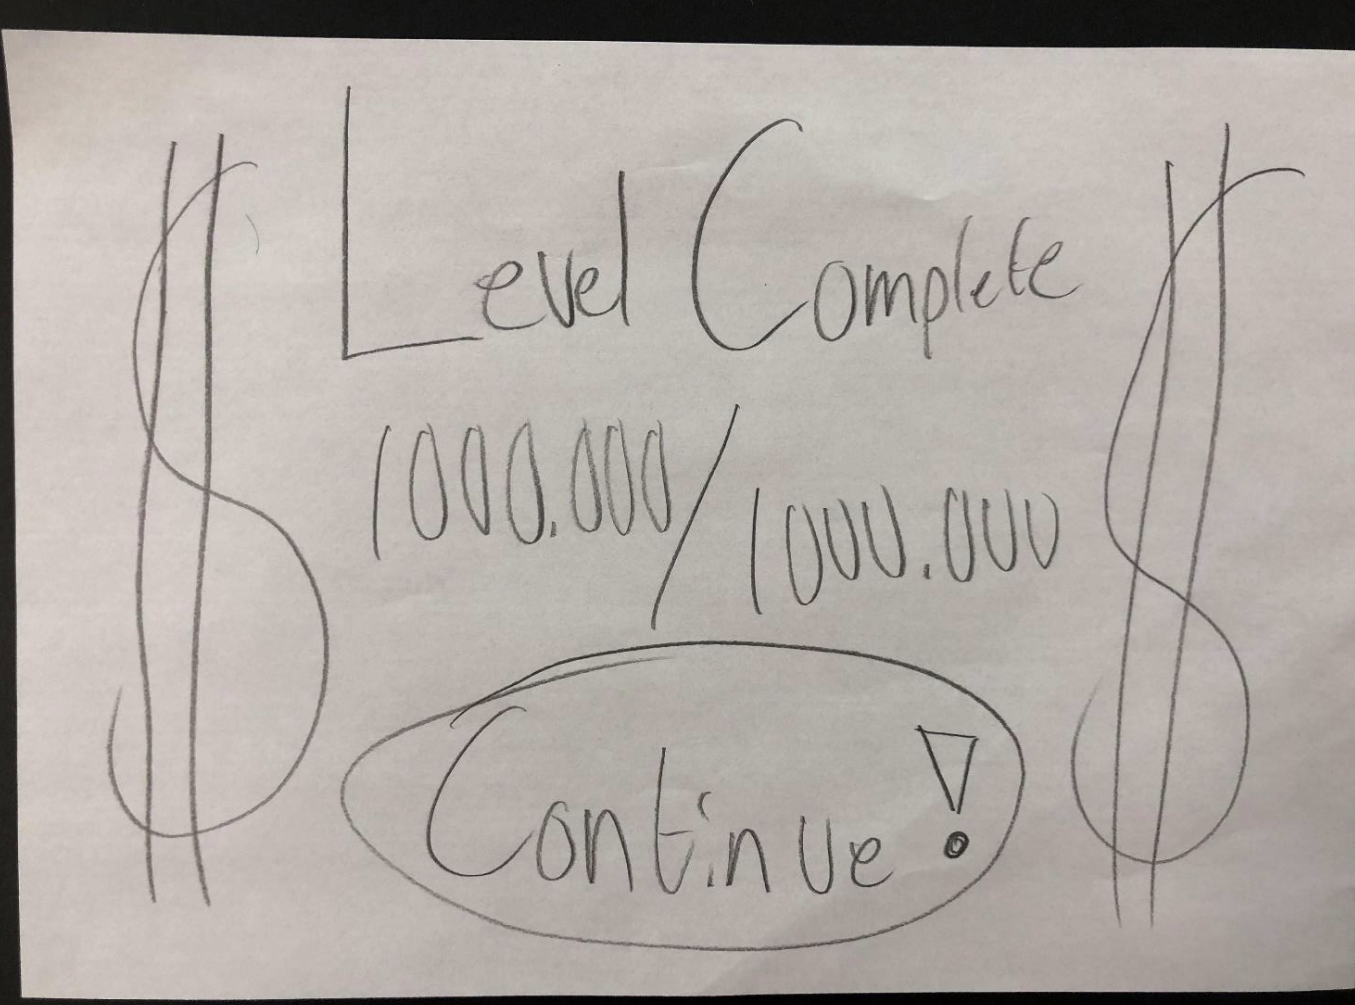 Level Complete
1000.000/1000.000
Continue!